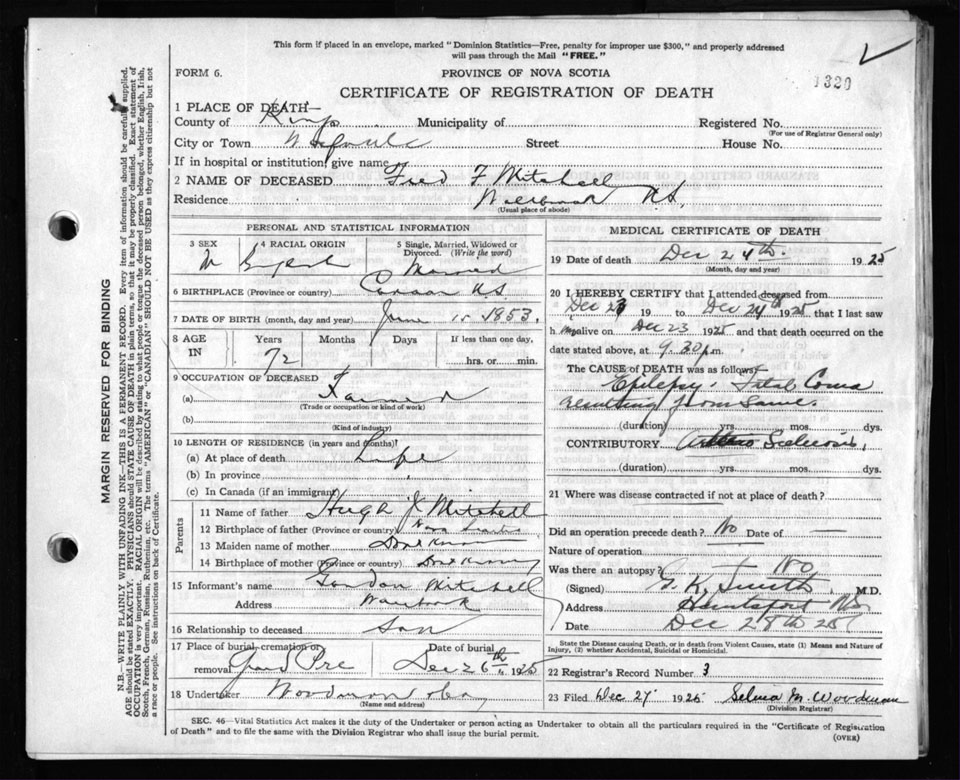 This form if placed in an envelope, marked "Dominion Statistics—Free, penalty for improper use $300," and properly addressed
will pass through the Mail "FREE."
1320
FORM 6.
PROVINCE OF NOVA SCOTIA
CERTIFICATE OF REGISTRATION OF DEATH
1 PLACE OF DEATH—
County of Kings Municipality of Registered No.
(For use of Registrar General only)
City or Town Street House No.
If in hospital or institution, give name
2 NAME OF DECEASED Fred F Mitchell
Residence Wallbrook N.S.
(Usual place of abode)
PERSONAL AND STATISTICAL INFORMATION
3 SEX 4 RACIAL ORIGIN 5 Single, Married, Widowed or Divorced. (Write the word)
M English Married
6 BIRTHPLACE (Province or country) Canaan N.S.
7 DATE OF BIRTH (month, day and year) June 15 1853.
8 AGE IN Years Months Days If less than one day,
72 hrs. or min.
9 OCCUPATION OF DECEASED
(a) Farmer
(Trade or occupation or kind of work)
(b)
(Kind of industry)
10 LENGTH OF RESIDENCE (in years and months)
(a) At place of death Life
(b) In province
(c) In Canada (if an immigrant)
Parents
11 Name of father Hugh J Mitchell
12 Birthplace of father (Province or country) Nova Scotia
13 Maiden name of mother Dont Know
14 Birthplace of mother (Province or country) Dont Know
15 Informant's name London Mitchell
Address Wallbrook
16 Relationship to deceased Son
17 Place of burial, cremation or removal Grand Pre Date of burial Dec 26th 1925
18 Undertaker Woodman &Co
(Name and address)
MEDICAL CERTIFICATE OF DEATH
19 Date of death Dec 24th 1925
(Month, day and year)
20 I HEREBY CERTIFY that I attended deceased from
Dec 23 19 to Dec 24th 1925 that I last saw
h im alive on Dec 23 1925 and that death occurred on the
date stated above, at 9.30 p.m.
The CAUSE OF DEATH was as follows:
Epilepsy. Fatal Coma
resulting from same.
(duration) yrs. mos. dys.
CONTRIBUTORY Arterio Sclerosis.
(duration) yrs. mos. dys.
21 Where was disease contracted if not at place of death?
Did an operation precede death? No Date of
Nature of operation
Was there an autopsy? no
(Signed) K. Smith M.D.
Address Hantsport NS
Date Dec 28th 25
State the Disease causing Death, or in death from Violent Causes, state (1) Means and Nature of
Injury, (2) whether Accidental, Suicidal or Homicidal.
22 Registrar's Record Number 3
23 Filed Dec 27 1925 Selina M. Woodman
(Division Registrar)
SEC. 46—Vital Statistics Act makes it the duty of the Undertaker or person acting as Undertaker to obtain all the particulars required in the "Certificate of Registration
of Death" and to file the same with the Division Registrar who shall issue the burial permit.
(OVER)
MARGIN RESERVED FOR BINDING
N.B.—WRITE PLAINLY WITH UNFADING INK—THIS IS A PERMANENT RECORD. Every item of information should be carefully supplied.
AGE should be stated EXACTLY. PHYSICIANS should STATE CAUSE OF DEATH in plain terms, so that it may be properly classified. Exact statement of
OCCUPATION is very important. RACIAL ORIGIN will be described by stating to what people or tongue the deceased person belonged, whether English, Irish,
Scotch, French, German, Russian, Ruthenian, etc. The terms "AMERICAN" or "CANADIAN" SHOULD NOT BE USED as they express citizenship but not
a race or people. See instructions on back of Certificate.